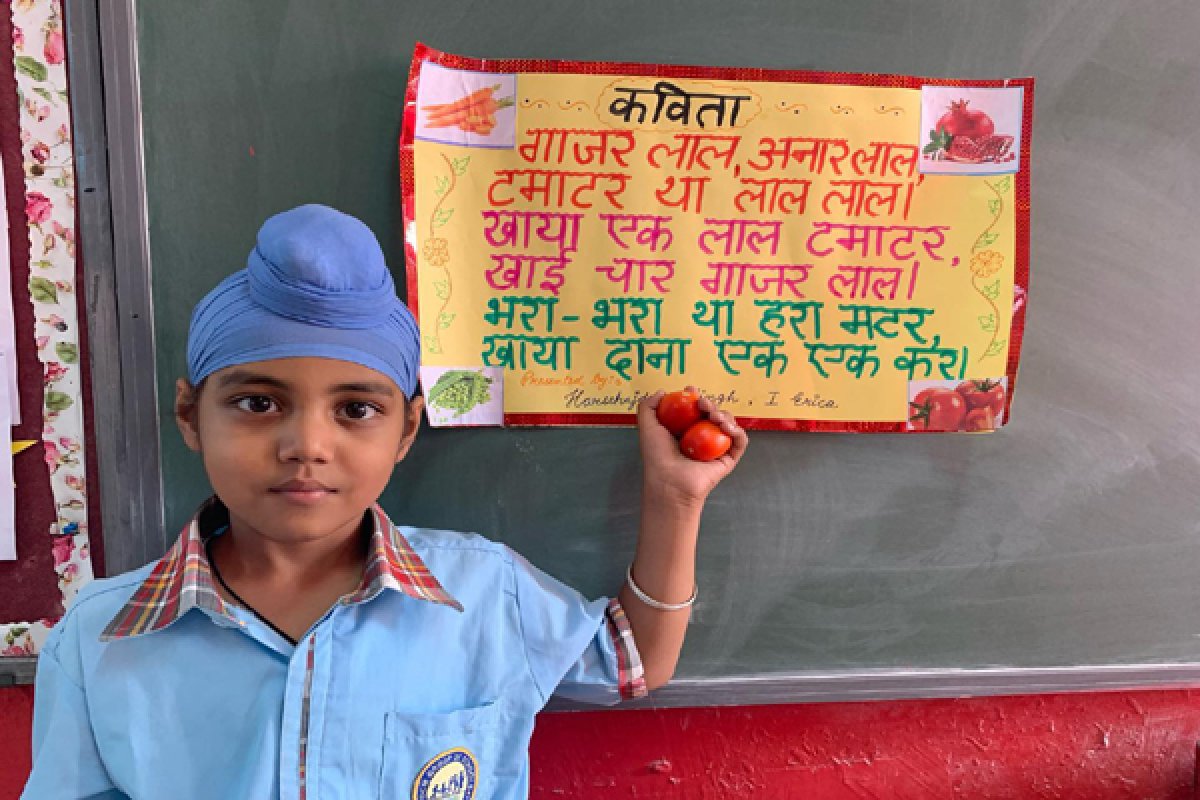 कविता
गाजर लाल, अनार लाल,
टमाटर था लाल लाल।
खाया एक लाल टमाटर,
खाई चार गाजर लाल।
भरा-भरा था हरा मटर,
खाया दाना एक एक कर।
Presented by:
Singh, I Erica